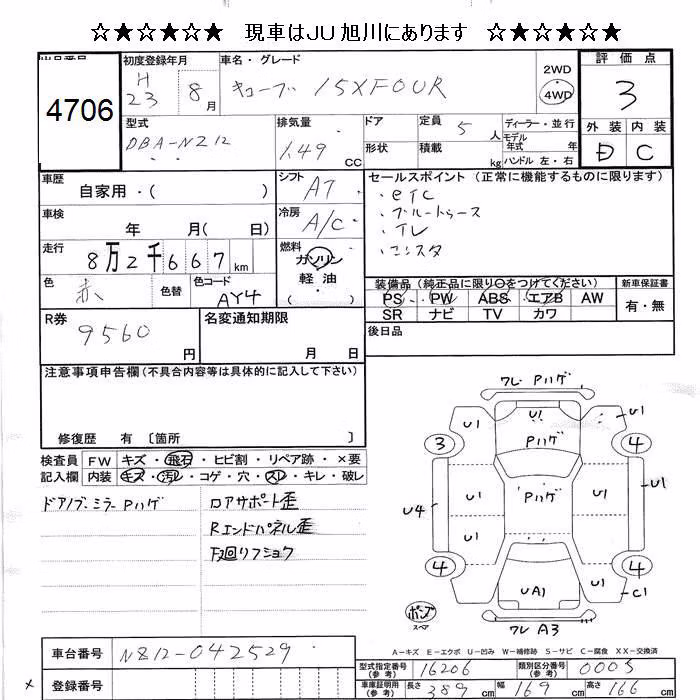 ☆★☆★☆★ 現車はJU旭川にあります ☆★☆★☆★
出品番号
4706
初度登録年月
H
23 8 月
車名・グレード
キューブ 15XFOUR
2WD
4WD
評価点
3
外装 内装
D C
型式
DBA-NZ12
排気量
1.49 cc
ドア
形状
定員 5 人
積載 kg
ディーラー・並行
モデル
年式 年
ハンドル 左・右
車歴
自家用・( )
シフト
AT
セールスポイント(正常に機能するものに限ります)
・etc
・ブルートゥース
・TV
・エンスタ
車検
年 月( 日)
冷房
A/C
走行
8万2千667km
燃料
ガソリン
軽油
( )
色
赤
色替
色コード
AY4
装備品(純正品に限り○をつけてください)
PS PW ABS エアB AW
SR ナビ TV カワ
新車保証書
有・無
R券
9560 円
名変通知期限
月 日
後日品
注意事項申告欄(不具合内容等は具体的に記入して下さい)
修復歴 有 〔箇所 〕
検査員
記入欄
FW キズ・飛石・ヒビ割・リペア跡・×要
内装 キズ・汚レ・コゲ・穴・スレ・キレ・破レ
ドアノブ・ミラーPハゲ
ロアサポート歪
Rエンドパネル歪
下廻リフショク
ワレ Pハゲ
U1 U1 U1
Pハゲ
3 4
U1 Pハゲ U1 U1
U4
U1 U1
4 4
UA1 C1
ポンプ
スペア
ワレ A3
A−キズ E−エクボ U−凹み W−補修跡 S−サビ C−腐食 XX−交換済
車台番号
NZ12-042529
登録番号
型式指定番号
(参考)
16206
類別区分番号
(参考)
0005
車庫証明用
(参考)
長さ 389 cm 幅 169 cm 高さ 166 cm